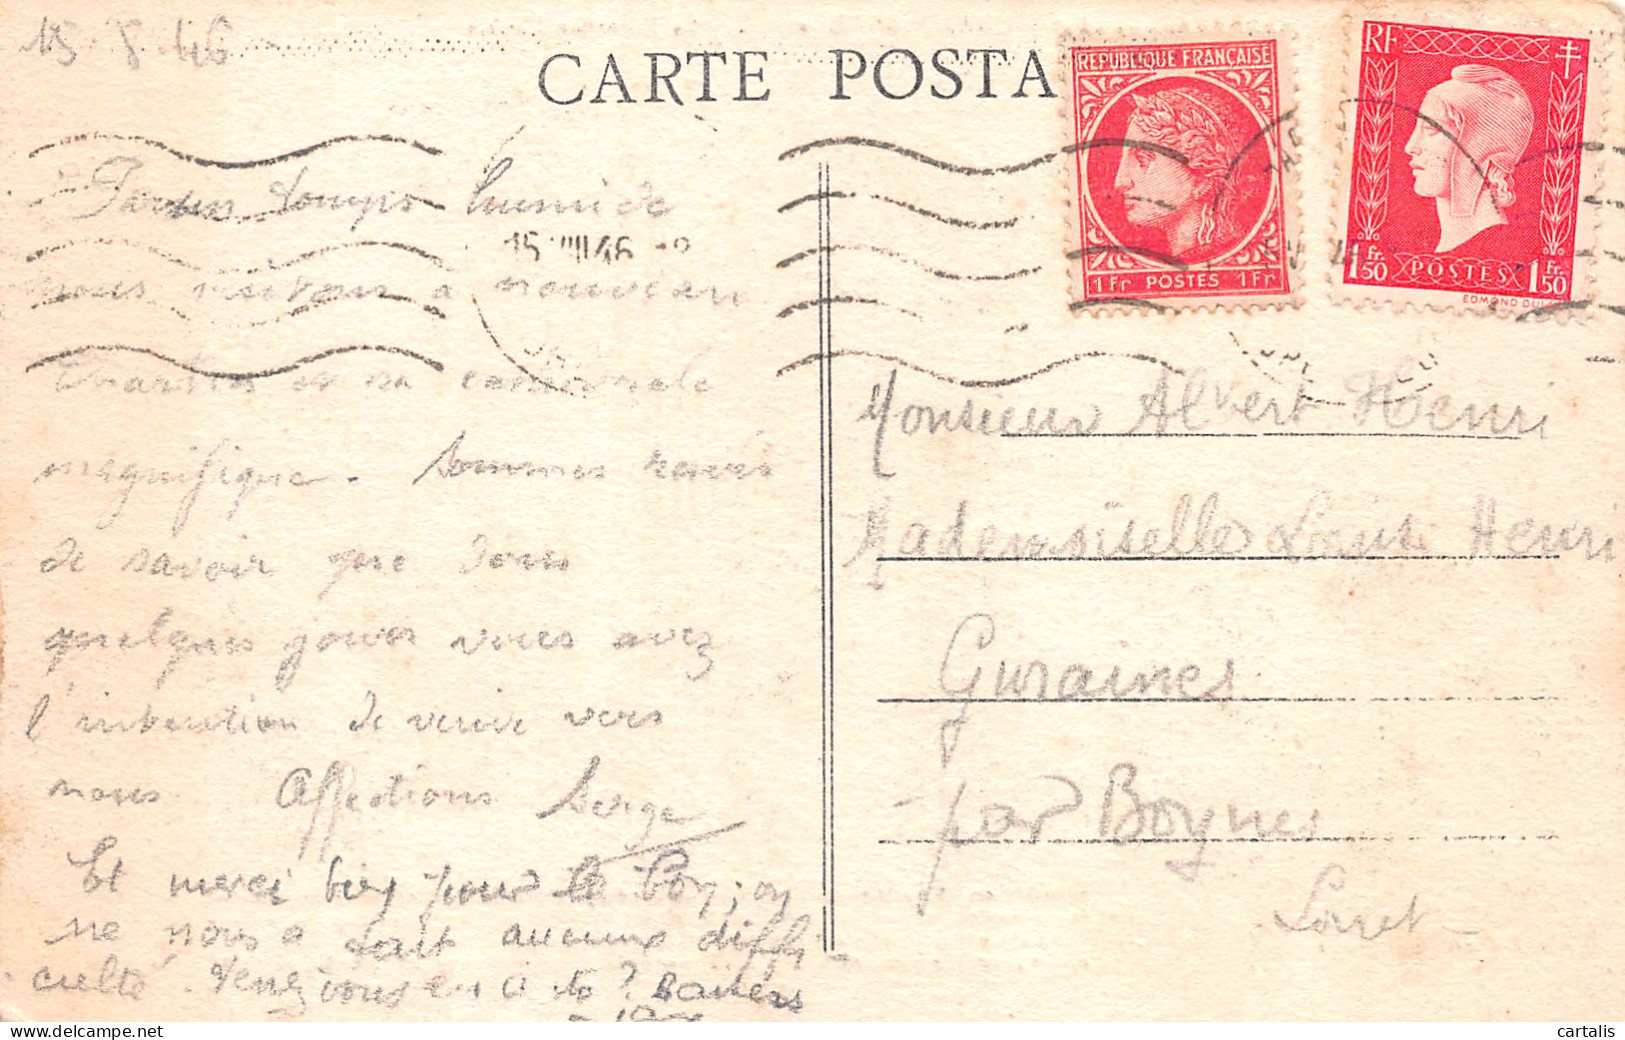 15 8 46
CARTE POSTA
REPUBLIQUE FRANÇAISE
1Fr POSTES 1Fr
RF
1Fr.50 POSTES 1Fr.50
EDMOND DUL
15 VIII 46
Par un temps humide
nous visitons à nouveau
Chartres et sa cathédrale
magnifique. Sommes ravis
de savoir que dans
quelques jours vous avez
l'intention de venir vers
nous Affections Serge
Et merci bien pour le ; on
ne nous a fait aucune diffi
culté. Venez vous en a to? Baisers
Monsieur Albert Henri
Mademoiselle Henri
Givraines
par Boynes
Loiret
cartalis